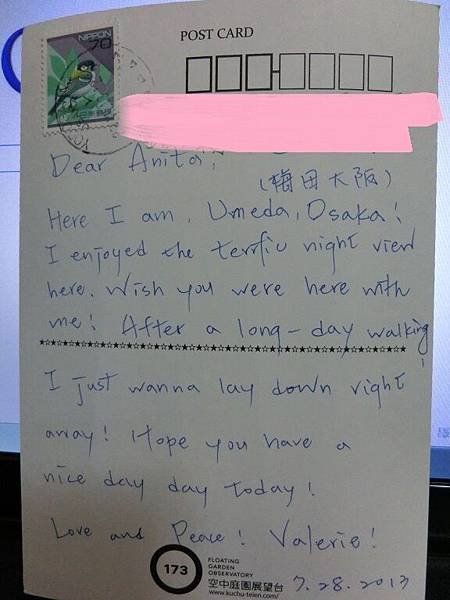 NIPPON
70
POST CARD
Dear Anita,
(梅田大阪)
Here I am, Umeda, Osaka!
I enjoyed the terrfic night view
here. Wish you were here with
me! After a long-day walking!
I just wanna lay down right
away! Hope you have a
nice day day today!
Love and Peace! Valerie!
173
FLOATING
GARDEN
OBSERVATORY
空中庭園展望台
www.kuchu-teien.com/
7.28.2013